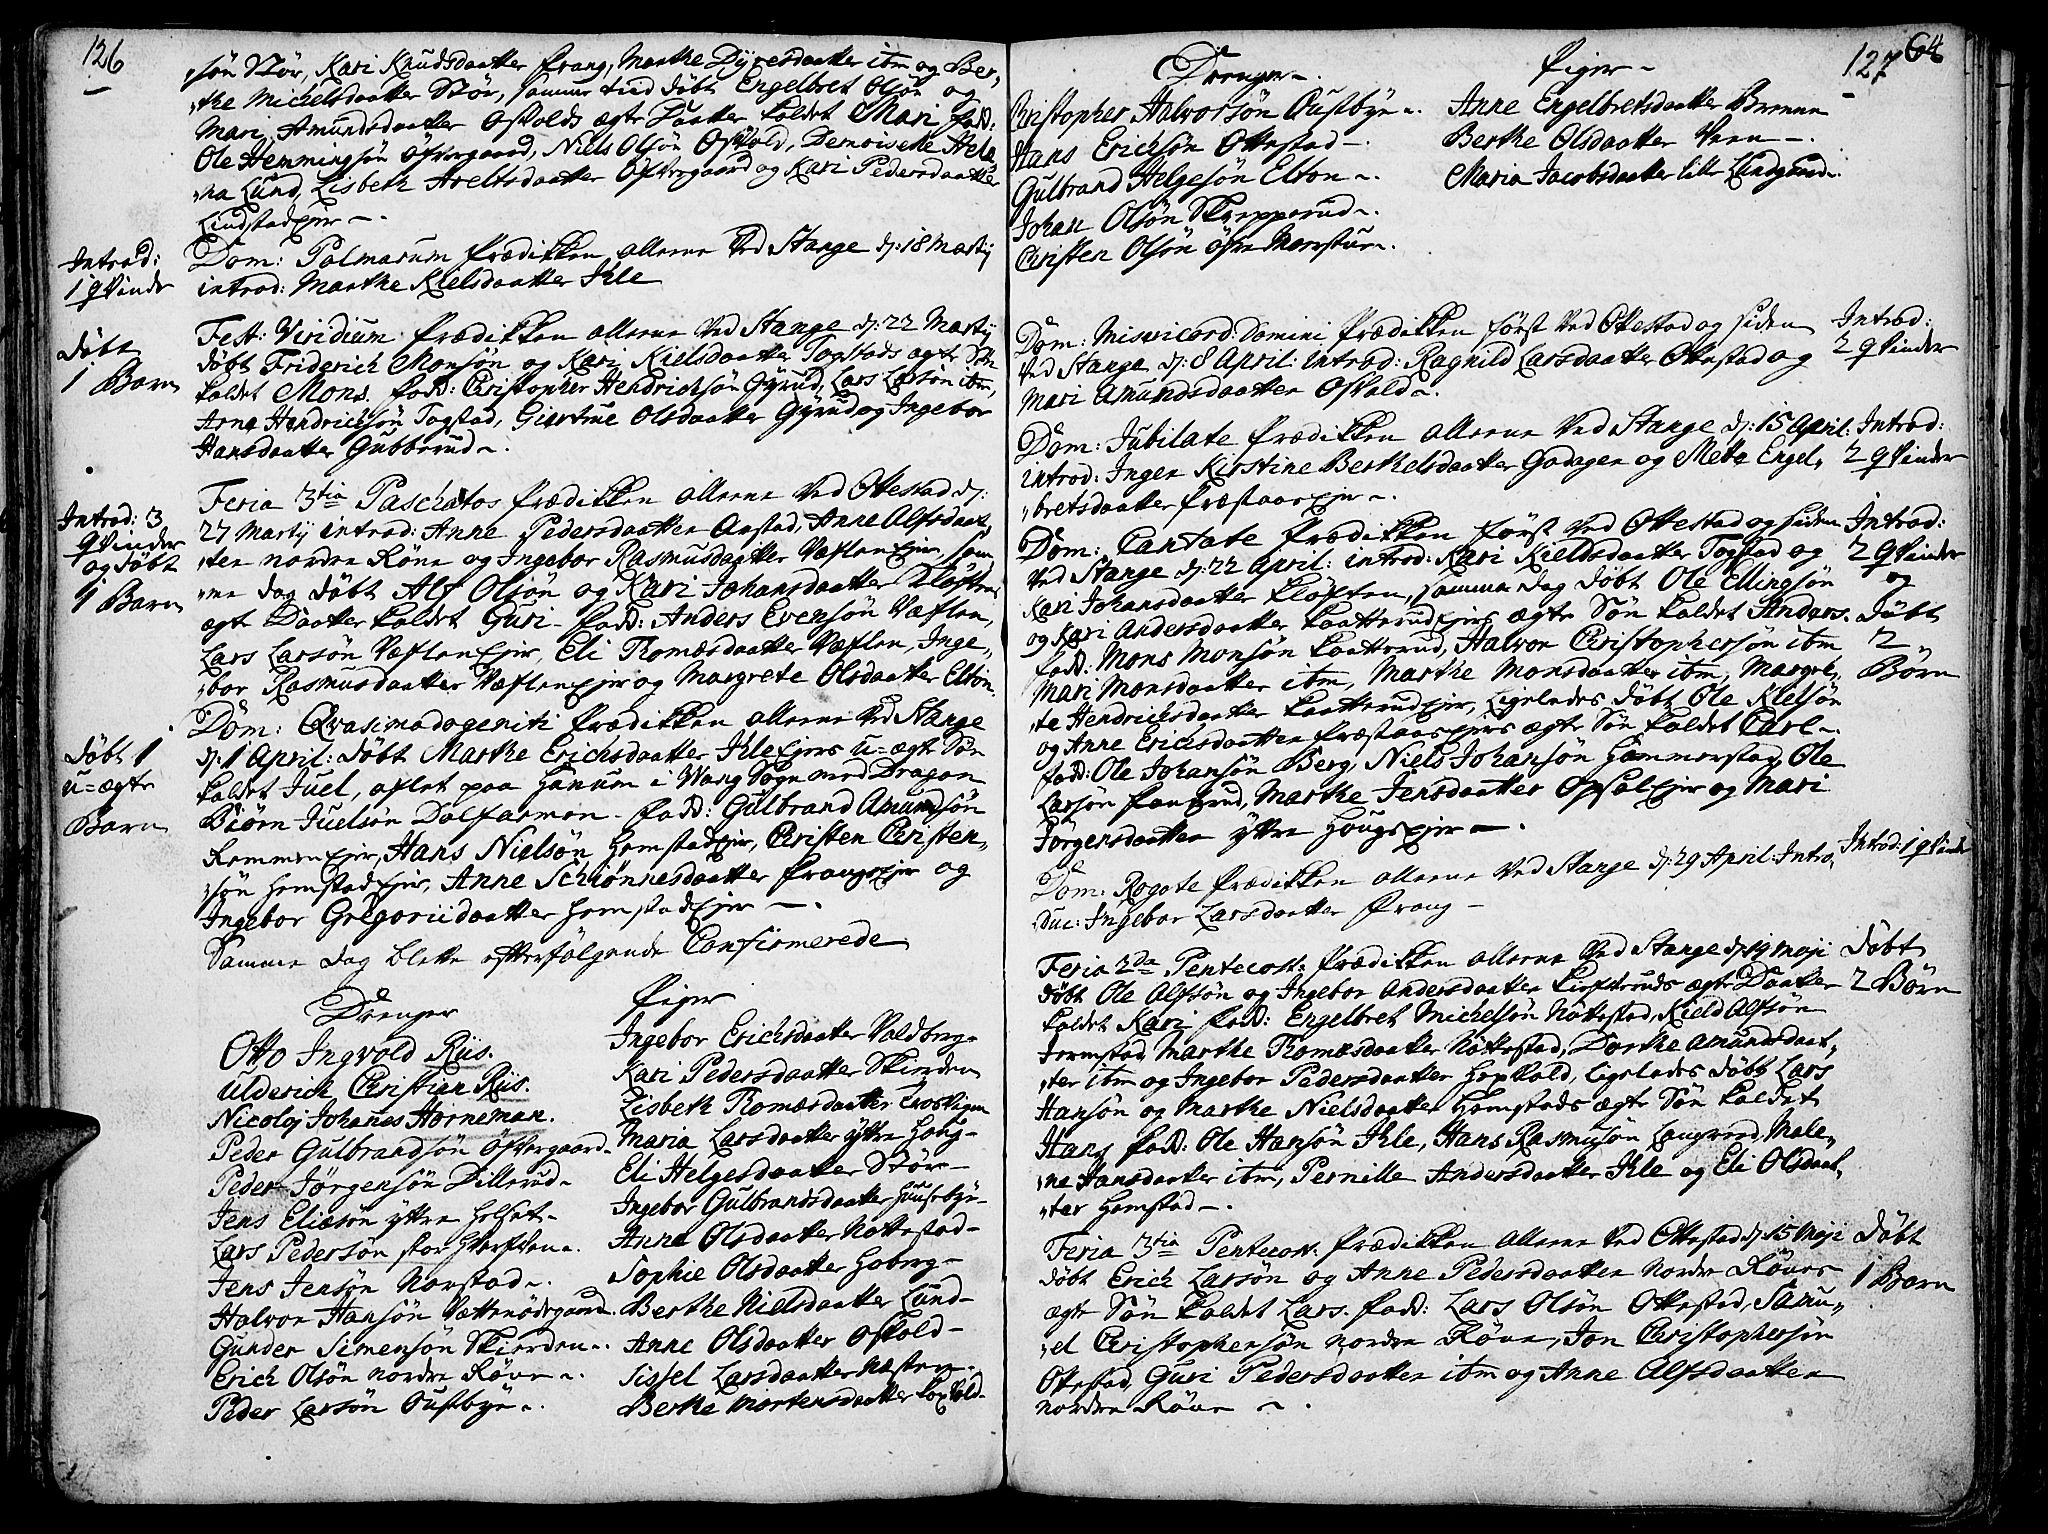 126
søn Stör, Kari Knudsdaatter Frang, Marthe Dyresdaatter itm og Ber-
the Michelsdaatter Stör, samme tid döbt Engelbret Olsön og
Mari Amundsdaatter Oskolds ægte Daatter kaldet Mari, fadd:
Ole Hemmingsön Ofvergaard, Niels Olsön Oskold, Demoiselle Hele-
na Lund, Lisbeth Aveltsdaatter Ofvergaard og Kari Pedersdaatter
Lindstadejer.
Introd: 1 qvinde
Dom: Palmarum Prædikken allene ved Stange d: 18 Martij
introd: Marthe Kielsdaatter Ihle
Döbt 1 Barn
Fest: Viridium Prædikken allene ved Stange d: 22 Martij
döbt Friderich Monsön og Kari Kielsdaatter Togstads ægte Sön
kaldet Mons. fadd: Christopher Hendrichsön Gyrud, Lars Larsön itm,
Arne Hendrichsön Togstad, Giertrue Olsdaatter Gyrud og Ingebor
Hansdaatter Gubberud.
Introd: 3 qvinder og döbt 1 Barn
Feria 3tia Paschatos Prædikken allene ved Ottestad d:
27 Martij introd: Anne Pedersdaatter Aastad, Anne Alfsdaat-
ter nordre Röne og Ingebor Rasmusdaatter Væflenejer, sam-
me dag döbt Alf Olsön og Kari Johansdaatter Kløftens
ægte Daatter kaldet Guri. fadd: Anders Evensön Væflen,
Lars Larsön Væflenejer, Eli Thomædaatter Væflen, Inge-
bor Rasmusdaatter Væflenejer og Margrete Olsdaatter Elton.
Döbt 1 u-ægte Barn
Dom: Qvasimodogeniti Prædikken allene ved Stange
d: 1 April: döbt Marthe Erichsdaatter Ihleejers u-ægte Sön
kaldet Juel, aflet paa Hanum i Wang Sogn med Dragon
Biörn Juelsön Dalfarmen. fadd: Gulbrand Amundsön
Rommenejer, Hans Nielsön Hemstadejer, Christen Christen-
sön Hemstadejer, Anne Schiönnesdaatter Frangsejer og
Ingebor Gregoriidaatter Hemstadejer.
Samme dag blefve efterfölgende Confirmerede
Drenger
Otto Ingvold Riis.
Ulderich Christian Riis.
Nicolaj Johanes Horneman.
Peder Gulbrandsön Ofvergaard.
Peder Jörgensön Dillerud.
Jens Eliæsön yttre Holset.
Lars Pedersön stor Hverfven.
Jens Jensön Norstad.
Halvor Hansön Vættenödegaard.
Gunder Simensön Skierden.
Erich Olsön nordre Röne.
Peder Larsön Oustbye.
Piger
Ingebor Erichsdaatter Valdberg.
Kari Pedersdaatter Skierden
Lisbeth Thomædaatter Trosvigen
Maria Larsdaatter yttre Houg
Eli Helgesdaatter Stör
Ingebor Gulbrandsdaatter Huusebye
Anne Olsdaatter Nöttestad
Sophie Olsdaatter Hoberg
Berthe Nielsdaatter Lund
Anne Olsdaatter Oskold
Sissel Larsdaatter Næsten
Berthe Mortensdaatter Hopkold
127 64
Drenger
Christopher Halvorsön Oustbye.
Hans Erichsön Ottestad.
Gulbrand Helgesön Elton.
Johan Olsön Skrepperud.
Christen Olsön öfre Morstue.
Piger
Anne Engelbretsdaatter Bremne
Berthe Olsdaatter Veen
Maria Jacobsdaatter lille Lundgaard.
Dom: Misericord. Domini Prædikken först ved Ottestad og siden
ved Stange d: 8 April: introd: Ragnild Larsdaatter Ottestad og
Mari Amundsdaatter Oskold.
Introd: 2 qvinder
Dom: Jubilate Prædikken allene ved Stange d: 15 April:
introd: Inger Kirstine Berthelsdaatter Godager og Mette Engel-
bretsdaatter Præstaasejer.
Introd: 2 qvinder
Dom: Cantate Prædikken först ved Ottestad og siden
ved Stange d: 22 April: introd: Kari Kieldsdaatter Togstad og
Kari Johansdaatter Kløften, samme dag döbt Ole Ellingsön
og Kari Andersdaatter Kaatterudejers ægte Sön kaldet Anders.
fadd: Mons Monsön Kaatterud, Halvor Christophersön itm
Mari Monsdaatter itm, Marthe Monsdaatter itm, Margre-
te Hendrichsdaatter Kaatterudejer, Ligeledes döbt Ole Kielsön
og Anne Erichsdaatter Præstaasejers ægte Sön kaldet Carl.
fadd: Ole Johansön Berg, Niels Johansön Hommerstad, Ole
Larsön Frangrud, Marthe Jensdaatter Opsalejer og Mari
Jörgensdaatter yttre Hougsejer.
Introd: 2 qvinder og Döbt 2 Börn
Dom: Rogate Prædikken allene ved Stange d: 29 April: Intro-
duc: Ingebor Larsdaatter Frang
Introd: 1 qvinde
Feria 2da Pentecost: Prædikken allene ved Stange d: 14 Maji
döbt Ole Alfsön og Ingebor Andersdaatter ægte Daatter
kaldet Kari fadd: Engelbret Michelsön Nöttestad, Kield Alfsön
Jermstad, Marthe Thomædaatter Nöttestad, Dorthe Amundsdaat-
ter itm og Ingebor Pedersdaatter Hopkold, Ligeledes döbt Lars
Hansön og Marthe Nielsdaatter Hemstads ægte Sön kaldet
Hans fadd: Ole Hansön Ihle, Hans Rasmusön Langrud, Male-
ne Hansdaatter itm, Pernille Andersdaatter Ihle og Eli Olsdaat-
ter Hemstad.
Döbt 2 Börn
Feria 3tia Pentecost. Prædikken allene ved Ottestad d: 15 Maji
döbt Erich Larsön og Anne Pedersdaatter nordre Rönes
ægte Sön kaldet Lars. fadd: Lars Olsön Ottestad, Samu-
el Christophersön nordre Röne, Jon Christophersön
Ottestad, Guri Pedersdaatter itm og Anne Alfsdaatter
nordre Röne.
Döbt 1 Barn